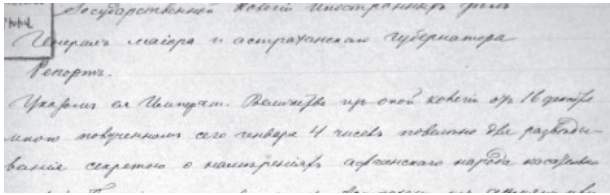 Государственной Колегіи Иностранныхъ дѣлъ
Генералъ маіора и астраханскаго губернатора
Репортъ.
Указомъ ея Императ. Величества изъ оной колегіи отъ 16 декабря
мною полученномъ сего генваря 4 числа повелѣно для развѣды-
ванія секретно о намѣреніяхъ афганскаго народа касательно